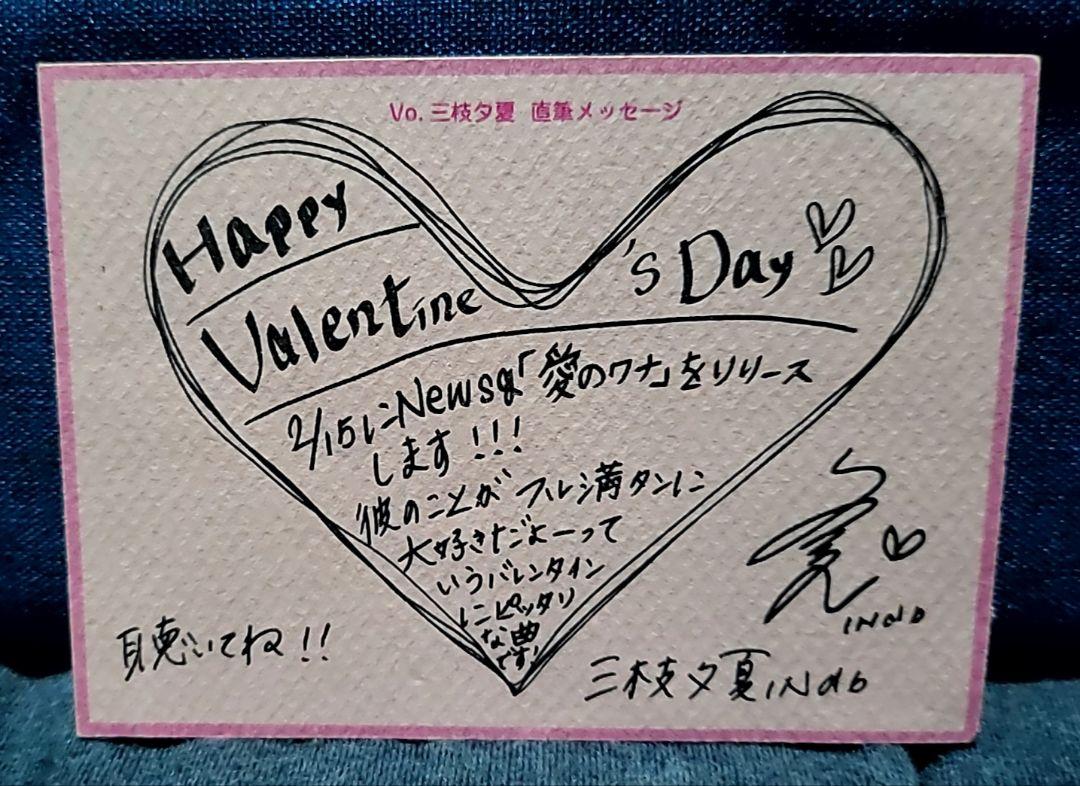 Vo. 三枝夕夏 直筆メッセージ
Happy
Valentine's Day
2/15にNewsg「愛のワナ」をリリース
します!!!
彼のことがフルシ満タンに
大好きだよーって
いうバレンタイン
にピッタリ
な曲
です!
聴いてね!!
三枝夕夏 IN db
IN db